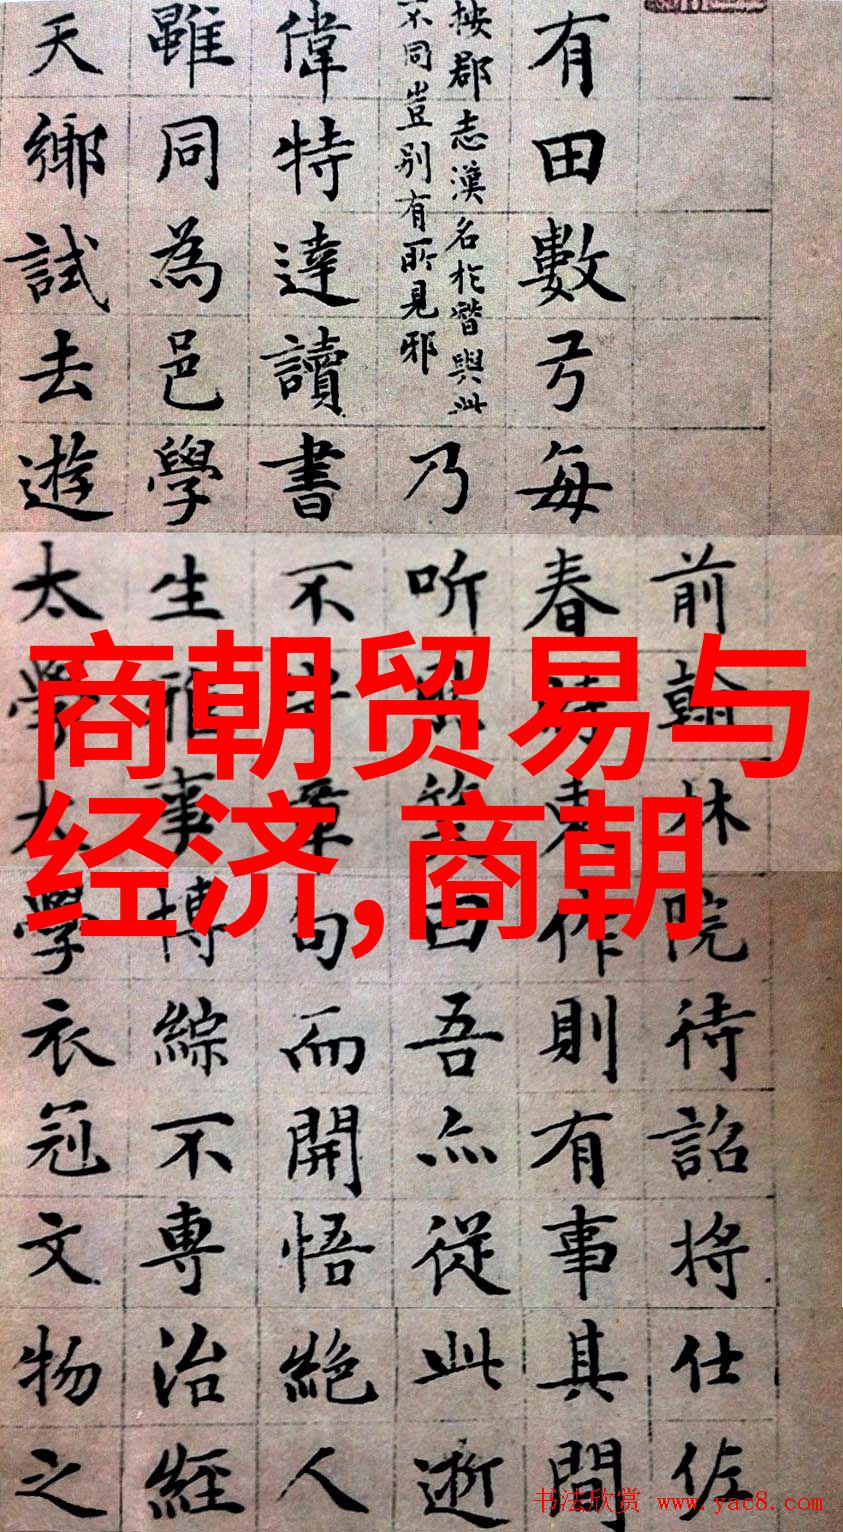 商朝贸易与
经济,商朝
前翰林院待詔將仕佐
有田數弓每春東作則有事其間
按郡志漢名於階與此
不同豈別有所見邪
乃听然笑曰吾亦從此逝
偉特達讀書不章句而開悟絕人
雖同為邑學生雅事博綜不專治經
天鄉試去遊太學太學衣冠文物之
书法欣赏 www.yac8.com